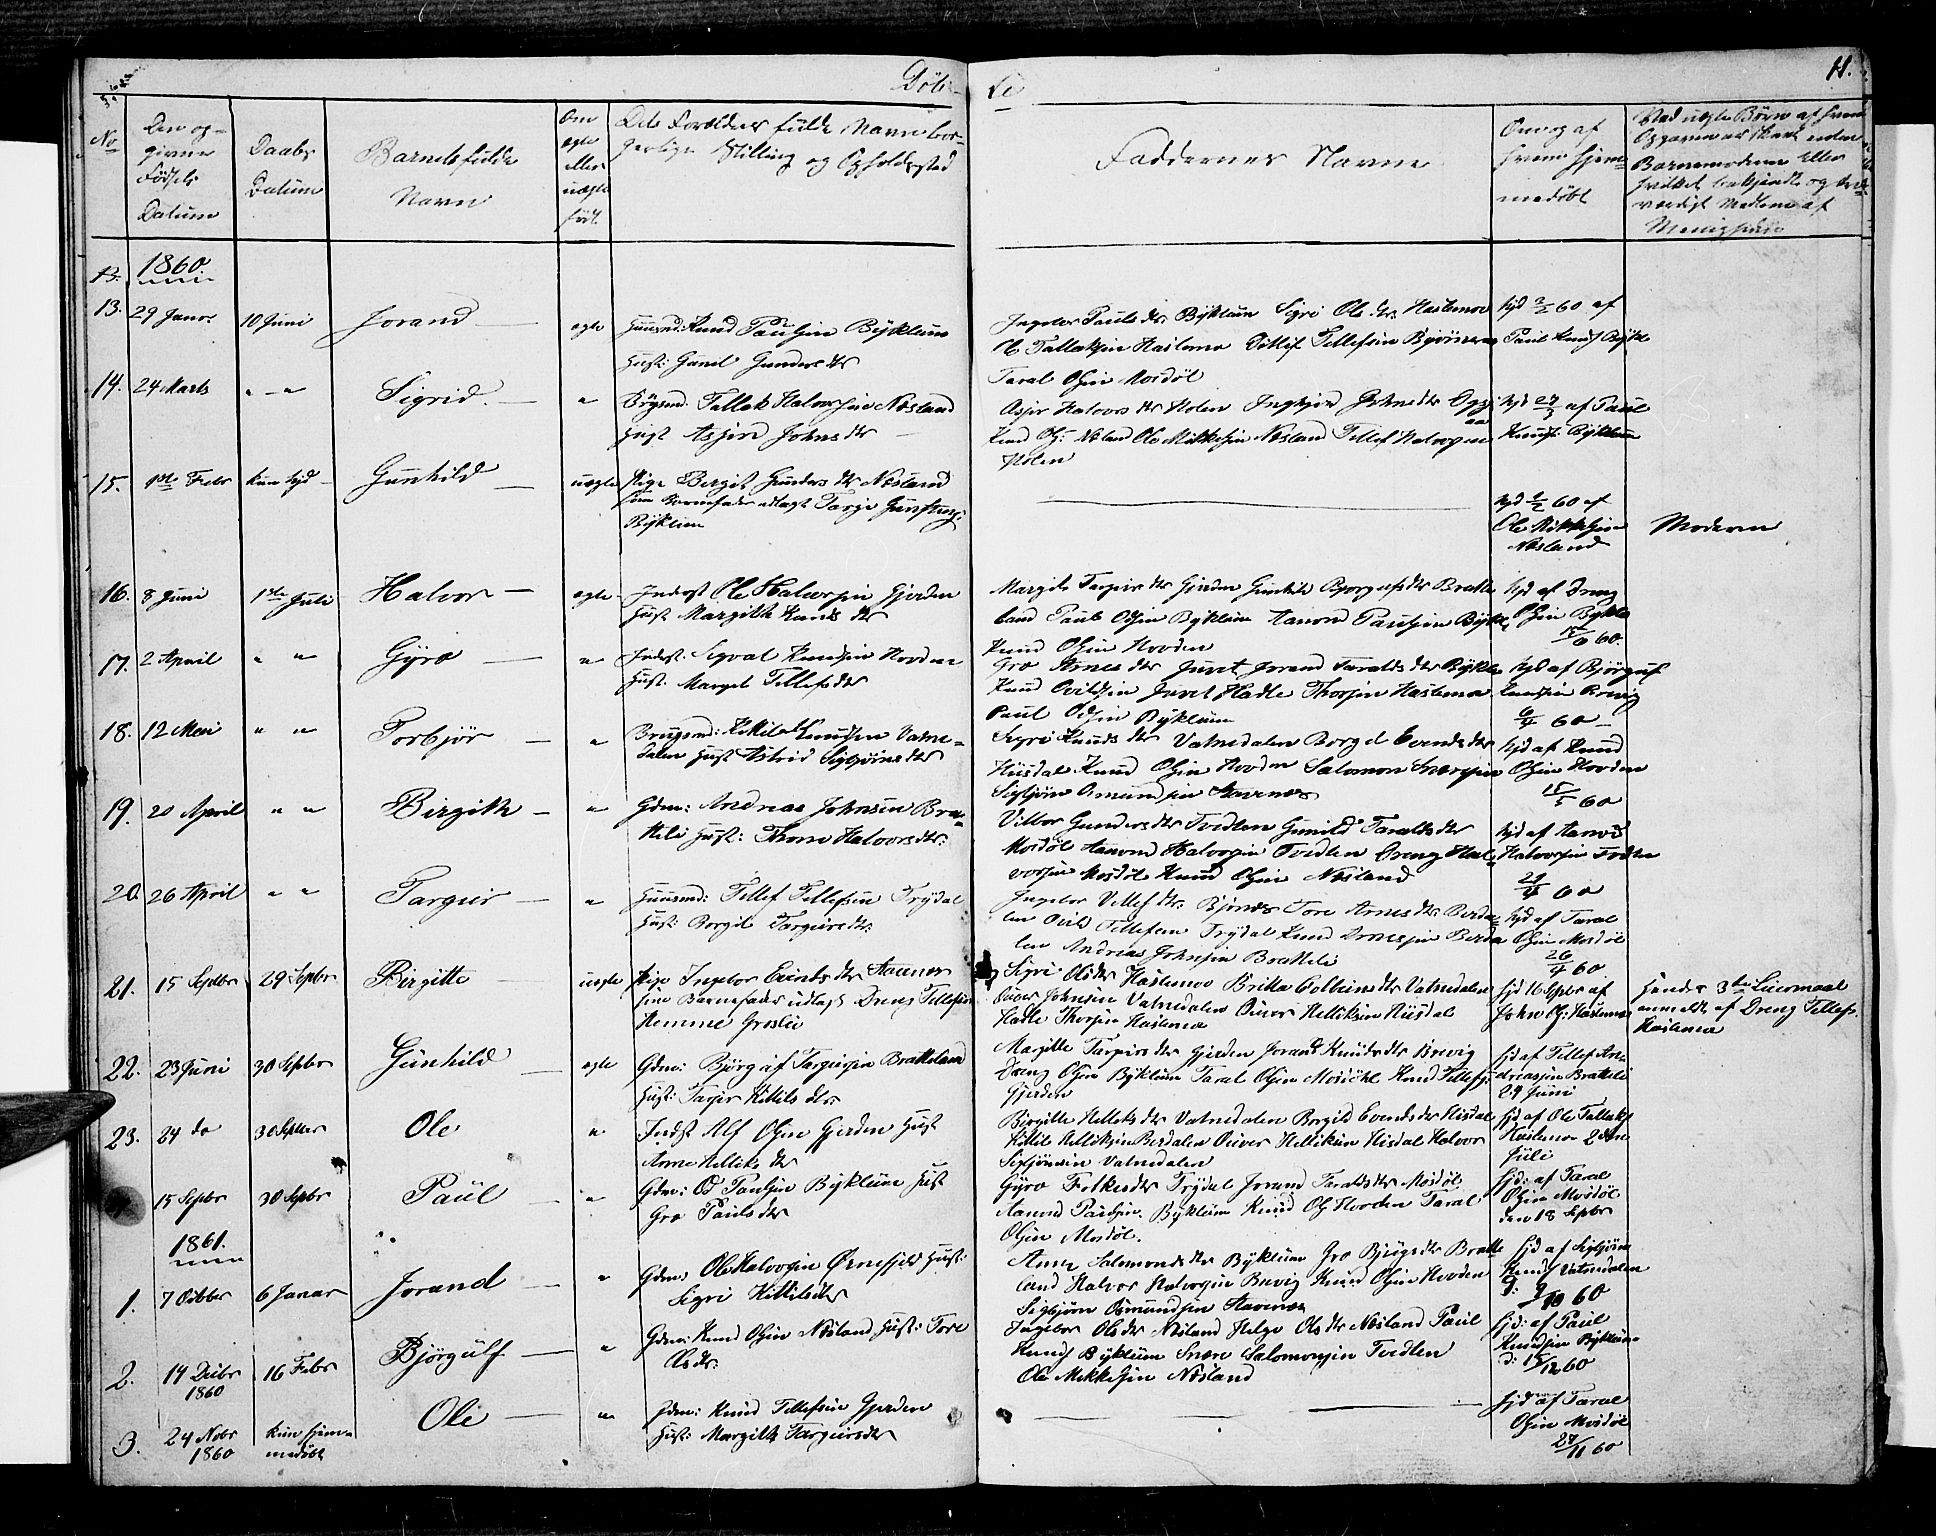 Døbte
11.
No
Den op-
givne
Fødsels
Datum
Daabs
Datum
Barnets fulde
Navn
Om
ægte
eller
uægte
født
Dets Forældres fulde Navne bor-
gerlige Stilling og Opholdssted
Faddernes Navne
Om og af
hvem hjem-
medøbt
Barnemoderen eller
1860
13. 29 Janr 10 Juni Jorand ægte Huusmd: Knud Paulsen Bÿkleum
Hust: Gunil Gunders dtr
Ingebor Pauls dtr Bÿkleum Sigri Ols dtr Hastemoe
O Tallaksen Hastemo Ditlef Tellefsen Bjørnes
Taral Olsen Mosdøl
hjd 2/2 60 af
Paul Knuds Bÿkl
14. 24 Marts " - " Sigrid. " Brugsmd: Tallak Halvorsen Næsland
Hust Asjer Johns dtr
Asjer Halvors dtr Holen Ingebjor Johns dtr
Knud Ols: Næsland Ole Mikkelsen Næsland Tellef Halvorsen
Holen
hjd 27/3 af Paul
Knuds: Bÿkleum
15. 1ste Febr kun hjd Gunhild uægte Pige Birgit Gunders dtr Næsland
som Barnefader udlagt Targe Gunstens:
Bÿkleum
hjd 2/2 60 af
Ole Mikkelsen
Næsland
Moderen
16. 8 Juni 1ste Juli Halvor ægte Inderst Ole Halvorsen Gjerden
Hust Margith Knuds dtr
Margit Targeis dtr Gjerden Gunhild Bjorgufs dtr Bratte
land Paul Olsen Bÿkleum Aanond Paulsen Bÿkle
Knud Olsen Hovden
hjd af Dreng
Olsen Bÿkle
60.
17. 2 April " " Gÿro " Inderst: Sigval Knudsen Hovden
Hust. Margit Tellefs dtr
Gro Arnes dtr Juvet Jorand Taralds dtr Bÿkle
Knud Ovildsen Juvet Hadle Thorsen Hastemo
Paul Odsen Bÿkleum
hjd af Bjørguf
Knudsen Brevig
6/4 60
18. 12 Mai " " Torbjør " Brugsmd: Kittil Knudsen Vatne-
dalen Hust Astrid Sigbjørns dtr
Sigri Knuds dtr Vatnedalen Borgil Evends dtr
Hüsdal Knud Olsen Hovden Salomon Snaresen
Sigbjørn Osmundsen Stavenæs
hjd af Knud
Olsen Hovden
15/5 60
19. 20 April " " Birgith " Gdm: Andreas Johnsen Brat-
teli Hust: Thone Halvors dtr:
Vilbor Gunders dtr Tvedten Gunild Taralds dtr
Mosdøl Aanond Halvorsen Tvedten Dreng Hal-
vorsen Mosdøl Knud Olsen Næsland
hjd af Aanond
Halvorsen Tvedten
60
20. 26 April " " Targier " Huusmd: Tellef Tellefsen Trÿdal
Hust: Borgil Targiers dtr.
Ingebor Tellefs dtr: Bjønes Tore Arnes dtr: Berda
len Ovil Tellefsen Trÿdal Knud Arnesen Berda
len Andreas Johnsen Bratteli
hjd af Taral
Olsen Mosdøl
26/4 60
21. 15 Septbr 29 Septbr Birgitte uægte Pige Ingebor Evinds dtr Stavenes
som Barnefader udlagt Dreng Tellefsen
Hemme Groslie
Sigri Ols dtr Hastemoe Britta Colbeins dtr Vatnedalen
Oiver Johnsen Vatnedalen Oiver Kelliksen Hüsdal
Hadle Thorsen Hastemo
hjd 16 Septbr af
John Ols: Hastemo
Hendes 3die Leiermaal
anmeldt af Dreng Tellefs.
Hastemo
22. 23 Juni 30 Septbr Gunhild ægte Gdm: Bjørguf Targiersen Bratteland
Hust: Targer Kittils dtr:
Margitte Targiers dtr Gjerden Jorand Knuds dtr Brevig
Dreng Olsen Bÿkleum Taral Olsen Mosdøhl Knud Tellefs:
Gjerden
hjd af Tellef An-
dreasen Bratteli
24 Juni
23. 24 do 30 Septbr Ole " Inderst Alf Olsen Gjerden Hust
Anne Kelleks dtr
Birgitte Kelleks dtr Vatnedalen Borgild Evends dtr Hisdal
Kittil Kelliksen Berdalen Oiver Kelliksen Hisdal Halvor
Sigbjønsen Vatnedalen
hjd af Ole Tallaks
Hastemo 2den
Juli
15 Septbr 30 Septbr Paul " Gdm: Od Paulsen Bÿkleum Hust
Gro Pauls dtr
Gÿro Folkes dtr Trÿdal Jorand Taralds dtr Mosdøl
Aanond Paulsen Bÿkleum Knud Ols Hovden Taral
Olsen Mosdøl.
hjd: af Taral
Olsen Mosdøl
den 18 Septbr
1861.
1. 7 Octbr 6 Januar Jorand " Gdm: Ole Halvorsen Ørnefjeld Hust:
Sigri Kittils dtr
Anne Salomons dtr Bÿkleum Gro Bjugs dtr Bratte
land Halvor Halvorsen Brevig Knud Olsen Hovden
Sigbjørn Osmundsen Stavenæs
hjd af Sigbjørn
Knuds Vatnedalen
60
2. 14 Decbr 1860 16 Febr Bjørgulf " Gdm: Knud Olsen Næsland Hust: Tore
Ols dtr.
Ingebor Ols dtr Næsland Helge Ols dtr Næsland Paul
Knuds Bÿkleum Snare Salomonsen Tvedten
Ole Mikkelsen Næsland
hjd: af Paul
Knudsen Bÿkleum
d: 15/12 60
3. 24 Novbr 1860 kun hjem-
medøbt Ole " Gdm: Knud Tellefsen Gjerden
Hust: Margith Targiers dtr
hjd af Taral
Olsen Mosdøl
27/11 60